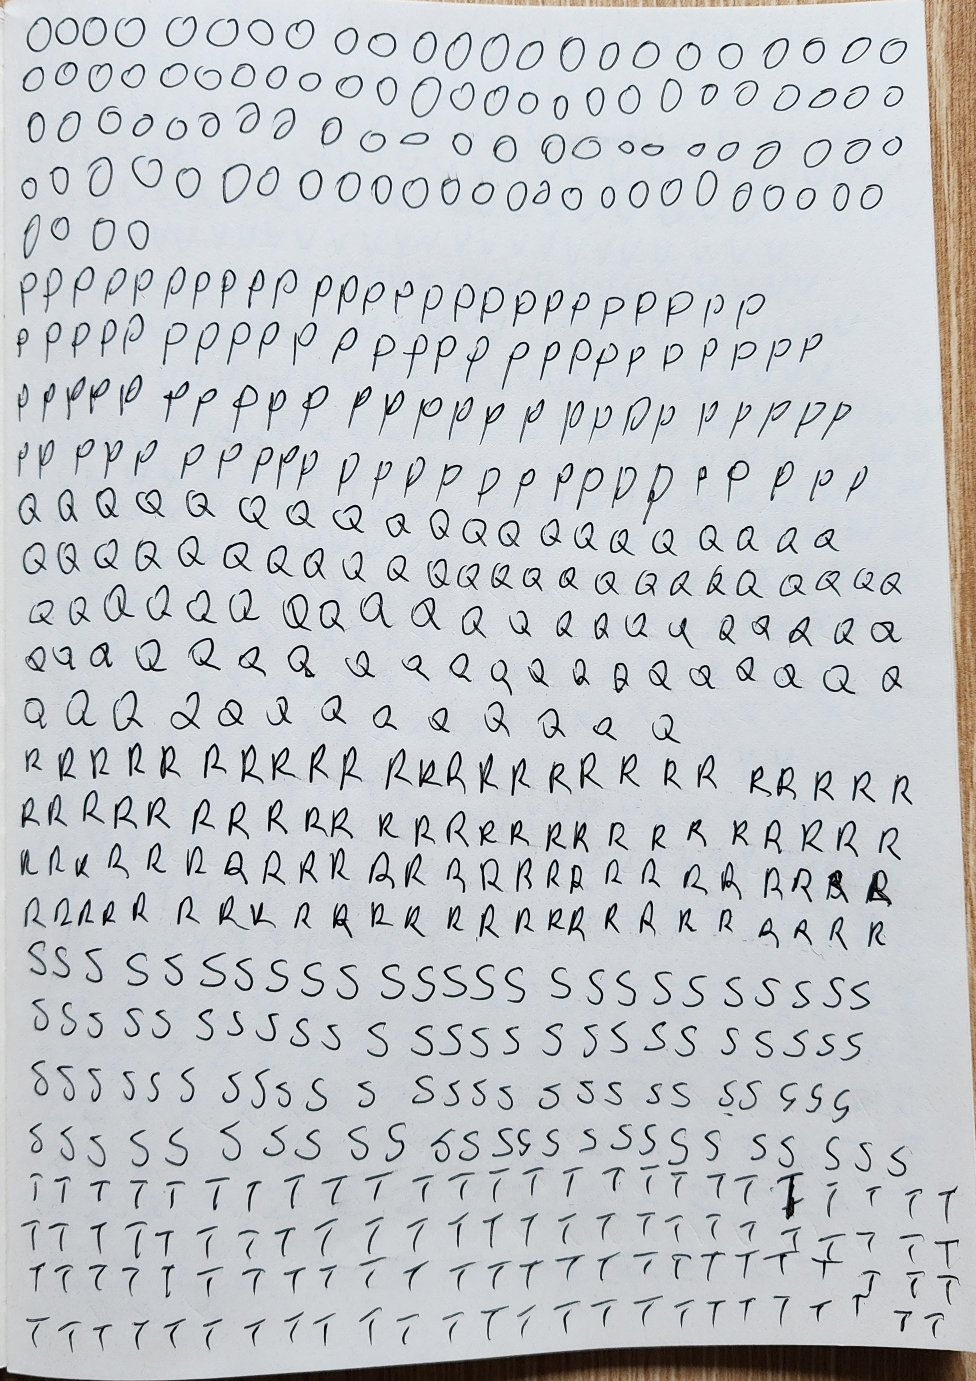 OOOO OOOO OO OOOOOOOOOOOOOO
OOOOOOOOOOOOOOOOOOOOOOOOOO
OOOOOOOO OOO OO OOOO OOO OOO
OOOOO OO OOOOOOOOOOOOOOOOOO
OO OO
PPPPP PPPPP PPPPPPPPPPPPPPPP
PPPPP PPPPP P PPPPP PPPPPPPPPP
PPPPP PPPPP PPPPPP PPPP PPPPP
PP PPP PPPPP PPPPPPPPPPP PPPPP
QQQQQ QQQ QQQQQQQQ QQQQ
QQQQQQQQQQ QQQQQQQQQQQQQ
QQQQQQ QQQQQQQQQQQ QQQQQ
QQQQQQQ QQQQQQQQQQQQQ
QQQ QQQQQQQQQQ
RRRRR RRRRR RRRRRRRRRR RRRRR
RRRRR RRRRR RRRRRRRRRR RRRRR
RRRRRR RRRRR RRRRRRRRRR RRRR
RRRRR RRR RRRR RRRRRRRRR RRRR
SSS SSSSSSS SSSSS SSSSSSSSSS
SSS SS SSSSS S SSSS SSSSS SSSSS
SSS SSS SSSS S SSSS SSS SS SS SSS
SSS SS SSS SS SSSSSSSSSS SS SSS
TTTTTTTTTTTTTTTTTTTTTTTTT
TTTTTTTTTTTTTTTTTTTTTTTTT
TTTTTTTTTTTTTTTTTTTTTTTTT
TTTTTTTTTTTTTTTTTTTTTTTTT